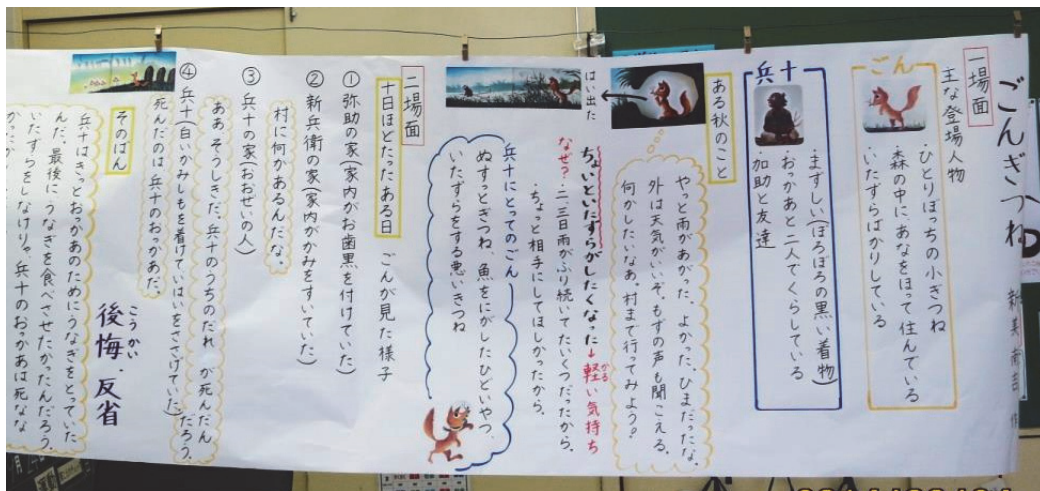 ごんぎつね
新美南吉 作
一場面
主な登場人物
ごん
・ひとりぼっちの小ぎつね
・森の中に、あなをほって住んでいる
・いたずらばかりしている
兵十
・まずしい(ぼろぼろの黒い着物)
・おっかあと二人でくらしている
・加助と友達
ある秋のこと
やっと雨があがった。よかった。ひまだったな。
外は天気がいいぞ。もずの声も聞こえる。
何かしたいなあ。村まで行ってみよう。
はい出た
ちょいといたずらがしたくなった→軽い気持ち
かる
なぜ?・二、三日雨がふり続いてたいくつだったから。
・ちょっと相手にしてほしかったから。
兵十にとってのごん
ぬすっとぎつね、魚をにがしたひどいやつ、
いたずらをする悪いきつね
二場面
十日ほどたったある日
ごんが見た様子
① 弥助の家(家内がお歯黒を付けていた)
② 新兵衛の家(家内がかみをすいていた)
村に何かあるんだな。
③ 兵十の家(おおぜいの人)
ああ、そうしきだ。兵十のうちのだれが死んだんだろう。
④ 兵十(白いかみしもを着けていはいをささげていた)
死んだのは兵十のおっかあだ。
そのばん
兵十はきっとおっかあのためにうなぎをとっていた
んだ。最後にうなぎを食べさせたかったんだろう。
いたずらをしなけりゃ、兵十のおっかあは死なな
かった
こうかい
後悔、反省